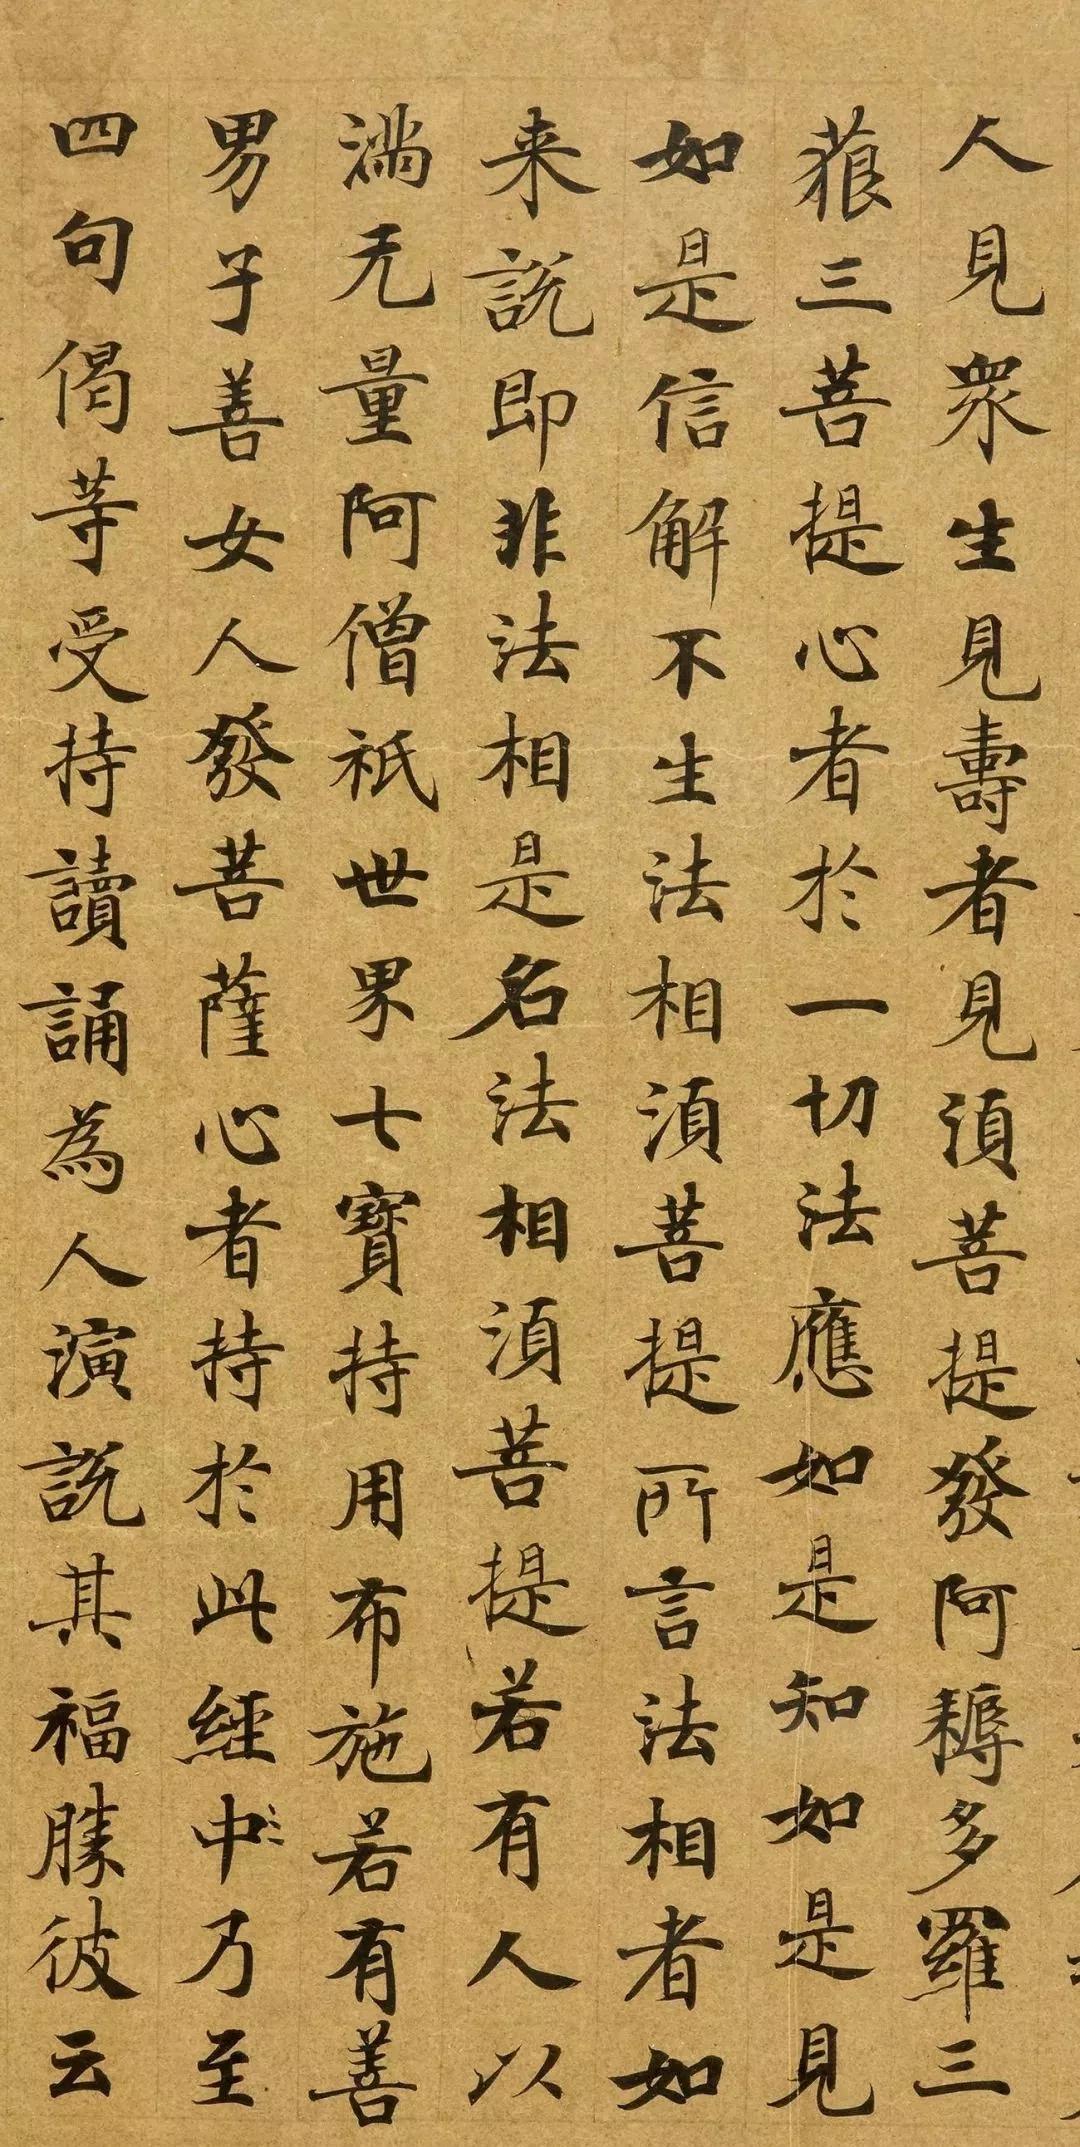 人見眾生見壽者見須菩提發阿耨多羅三
藐三菩提心者於一切法應如是知如是見
如是信解不生法相須菩提所言法相者如
来說即非法相是名法相須菩提若有人以
滿无量阿僧祇世界七寶持用布施若有善
男子善女人發菩薩心者持於此經中乃至
四句偈等受持讀誦為人演說其福勝彼云